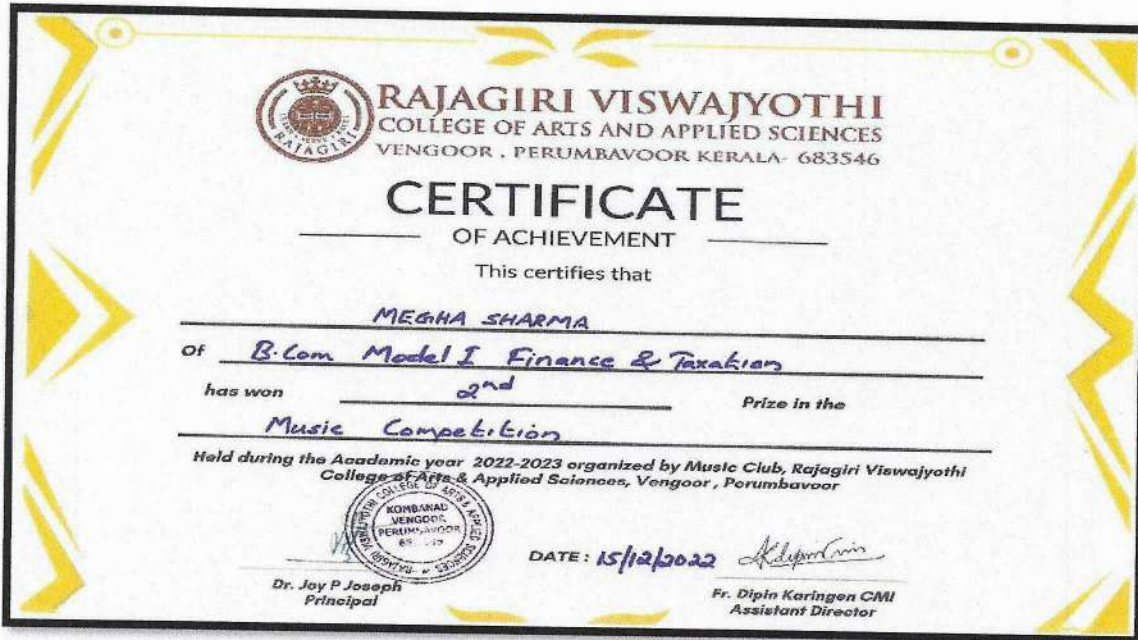 RAJAGIRI VISWAJYOTHI
COLLEGE OF ARTS AND APPLIED SCIENCES
VENGOOR , PERUMBAVOOR KERALA- 683546
RAJAGIRI
CERTIFICATE
OF ACHIEVEMENT
This certifies that
MEGHA SHARMA
Of B.Com Model I Finance & Taxation
has won 2nd Prize in the
Music Competition
Held during the Academic year 2022-2023 organized by Music Club, Rajagiri Viswajyothi
College of Arts & Applied Sciences, Vengoor , Perumbavoor
RAJAGIRI VISWAJYOTHI COLLEGE OF ARTS & APPLIED SCIENCES
KOMBANAD
VENGOOR
PERUMBAVOOR
DATE : 15/12/2022
Dr. Joy P Joseph
Principal
Fr. Dipin Karingen CMI
Assistant Director